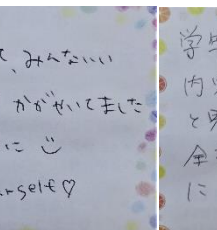 て、みんないい
かがやいてました
に
rself♡
学
内
と
全
に